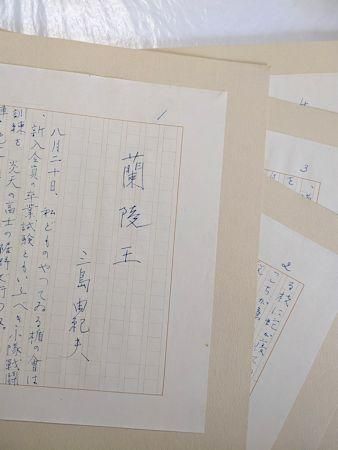 1
蘭陵王
三島由紀夫
八月二十日、私どものやつてゐる楯の會は
、新入会員の卒業試験ともいふべき小隊戦闘
訓練を、炎天の富士の裾野で行つた。
2
る枝に蛇が
3
4